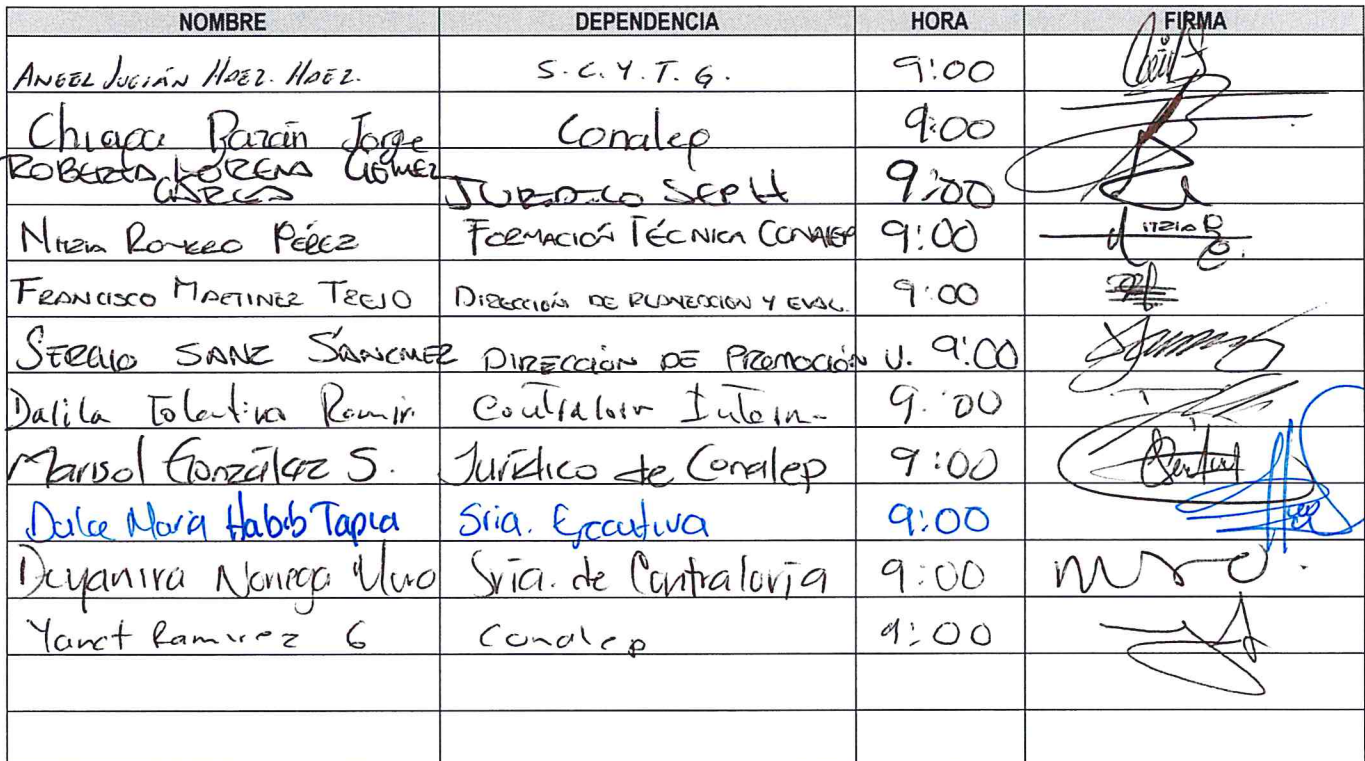 NOMBRE DEPENDENCIA HORA FIRMA
ANGEL JULIÁN HDEZ. HDEZ. S.C.Y.T.G. 9:00
Chiapa Bazán Jorge Conalep 9:00
ROBERTA LORENA GÓMEZ
GARCÍA JURIDICO SEPH 9:00
MITZIA ROMERO PÉREZ FORMACIÓN TÉCNICA CONALEP 9:00
FRANCISCO MARTINEZ TREJO DIRECCIÓN DE PLANEACION Y EVAL. 9:00
SERGIO SANZ SÁNCHEZ DIRECCIÓN DE PROMOCIÓN V. 9:00
Dalila Tolentino Ramir. Contralor Intern 9:00
Marisol González S. Jurídico de Conalep 9:00
Dulce María Habib Tapia Sria. Ejecutiva 9:00
Deyanira Noriega Sría. de Contraloría 9:00
Yanet Ramirez G Conalep 9:00